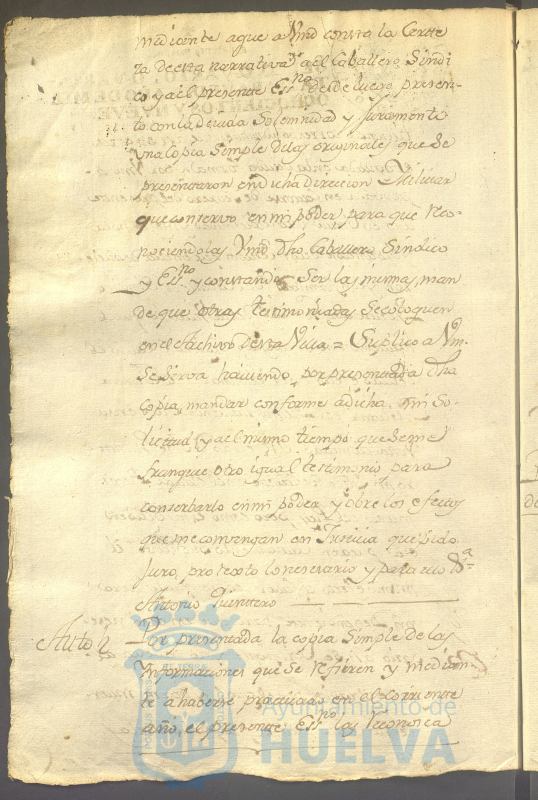 mediante aque a Vmd consta la Certe
za de esta narrativa, y ael Caballero Síndi
co, y ael presente Essno desde luego presen
to con la devida Solemnidad y Juramento
una copia Simple delas originales que Se
presentaron en dicha direccion Militar
que conservo en mi poder para que reco
nociendolas Vmd Dho Caballero Sindico
y Essno y constando Ser las mismas, man
de que otras testimoniadas Secoloquen
en el Archivo de esta Villa = Suplico a Vm.
Se Sirva haviendo por presentada Dha
copia, mandar conforme adicha mi So
licitud, y ael mismo tiempo que Seme
franquee otro igual testimonio para
conserbarlo en mi poder y obre los efectos
que me convengan en Justicia que pido
Juro, protexto lo nesesario y para ello Va
Antonio Quintero
Auto Por presentada la copia Simple de las
Informaciones que Se refieren y median
te a haberse practicado en el corriente
año, el presente Essno las reconosca
Ayuntamiento de
HUELVA